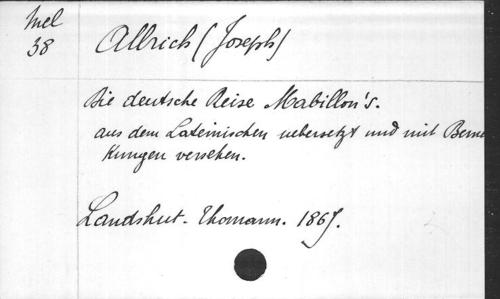 Mel
38
Allrich (Joseph)
Die deutsche Reise Mabillon's.
aus dem Lateinischen uebersetzt und mit Beme
kungen versehen.
Landshut. Thomann. 1867.